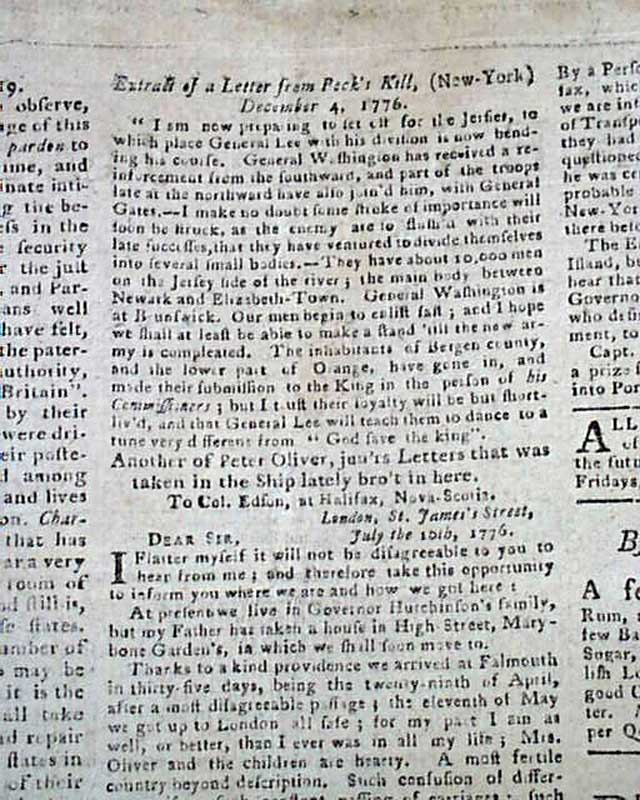 19.
observe,
age of this
pardon to
ime, and
inate inti-
g the be-
ess in the
security
r the just
, and Par-
ans well
have felt,
the pater-
authority,
Britain".
by their
were dri-
eir poste-
d among
and lives
on. Char-
that has
ar a very
room of
nd still is,
se states.
umber of
s may be
it is the
all take
nd repair
states in
of their
Extract of a Letter from Peek's Kill, (New-York)
December 4, 1776.
" I am now preparing to set off for the Jersies, to
which place General Lee with his division is now bend-
ing his course. General Washington has received a re-
inforcement from the southward, and part of the troops
late at the northward have also join'd him, with General
Gates.—I make no doubt some stroke of importance will
soon be struck, as the enemy are so flush'd with their
late successes, that they have ventured to divide themselves
into several small bodies.—They have about 10,000 men
on the Jersey side of the river ; the main body between
Newark and Elizabeth-Town. General Washington is
at Brunswick. Our men begin to enlist fast ; and I hope
we shall at least be able to make a stand 'till the new ar-
my is compleated. The inhabitants of Bergen county,
and the lower part of Orange, have gone in, and
made their submission to the King in the person of his
Commissioners ; but I trust their loyalty will be but short-
liv'd, and that General Lee will teach them to dance to a
tune very different from " God save the king".
Another of Peter Oliver, jun'rs Letters that was
taken in the Ship lately bro't in here.
To Col. Edson, at Halifax, Nova-Scotia.
London, St. James's Street,
DEAR SIR, July the 10th, 1776.
I Flatter myself it will not be disagreeable to you to
hear from me ; and therefore take this opportunity
to inform you where we are and how we got here :
At present we live in Governor Hutchinson's family,
but my Father has taken a house in High-Street, Mary-
bone Garden's, in which we shall soon move to.
Thanks to a kind providence we arrived at Falmouth
in thirty-five days, being the twenty-ninth of April,
after a most disagreeable passage ; the eleventh of May
we got up to London all safe ; for my part I am as
well, or better, than I ever was in all my life ; Mrs.
Oliver and the children are hearty. A most fertile
country beyond description. Such confusion of differ-
passing of carriages ; such
By a Perso
fax, whic
we are inf
of Transp
they had
questioned
he was ce
probable
New-Yor
there befo
The E
Island, b
hear that
Governo
who desi
ment, to
Capt.
a prize
into Por
ALL
of
the futu
Fridays,
By
A fe
Rum,
few Ba
Sugar,
lish Lo
good
ter.
per Qu